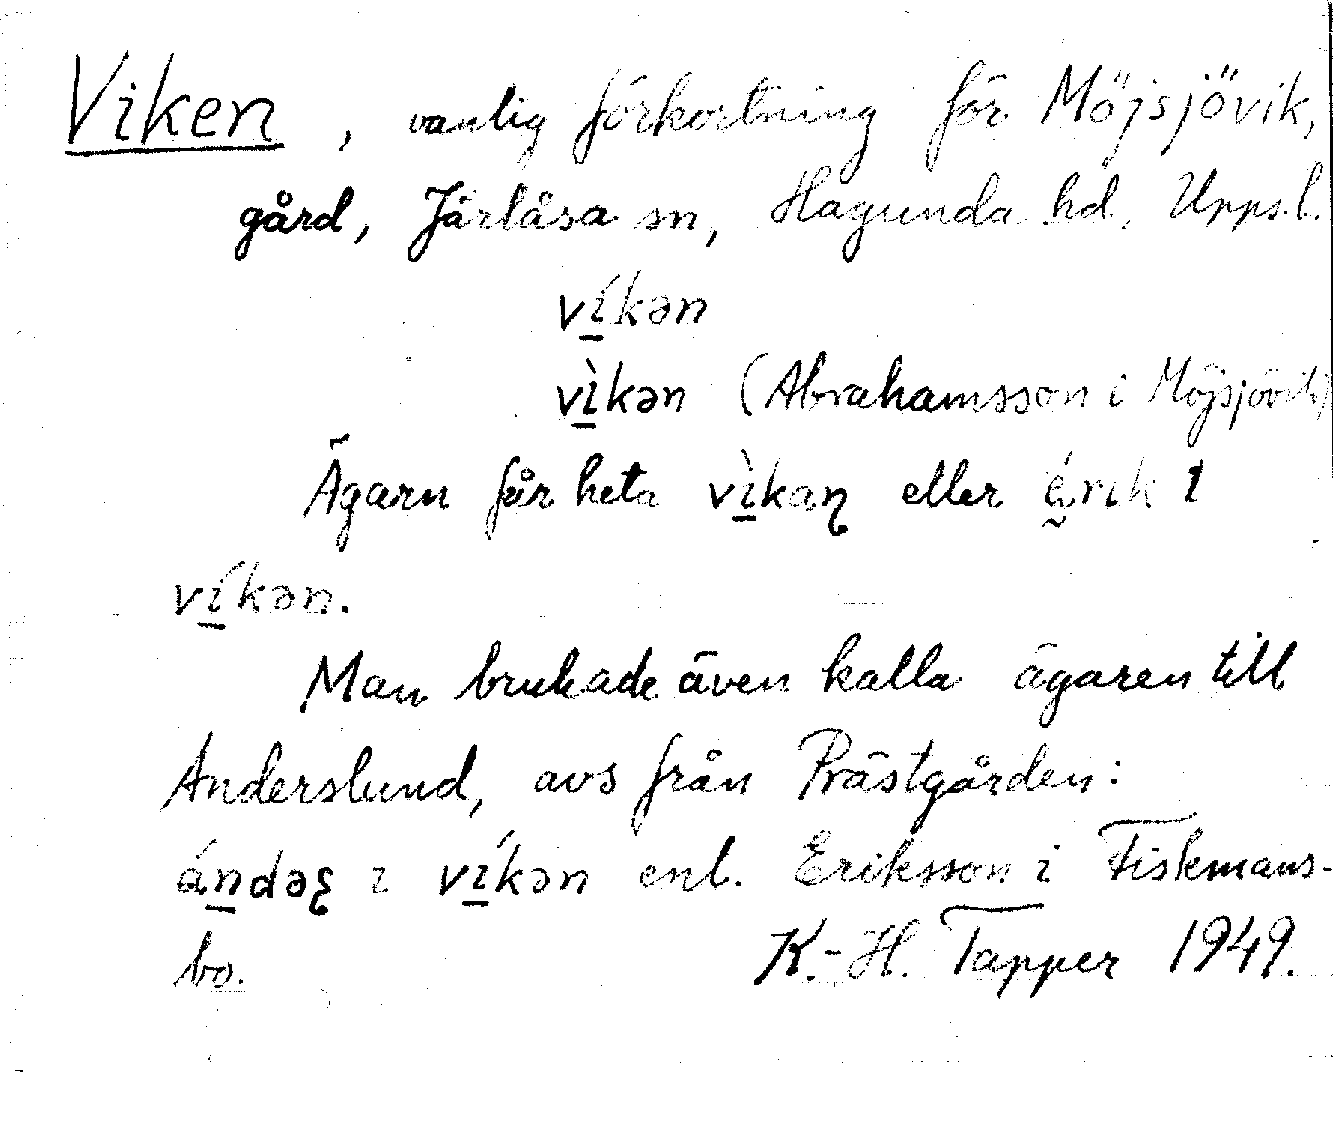 Viken, vanlig förkortning för Möjsjövik,
gård, Järlåsa sn, Hagunda hd, Upps.l.
ví̲kən
vì̲kən (Abrahamsson i Möjsjövik)
Ägarn får heta vì̲kaɳ eller é̬rɩk ɩ
ví̲kən.
Man brukade även kalla ägaren till
Anderslund, avs från Prästgården:
án̲dəʂ ɩ ví̲kən enl. Eriksson i Fiskmans-
bo. K.-H. Tapper 1949.